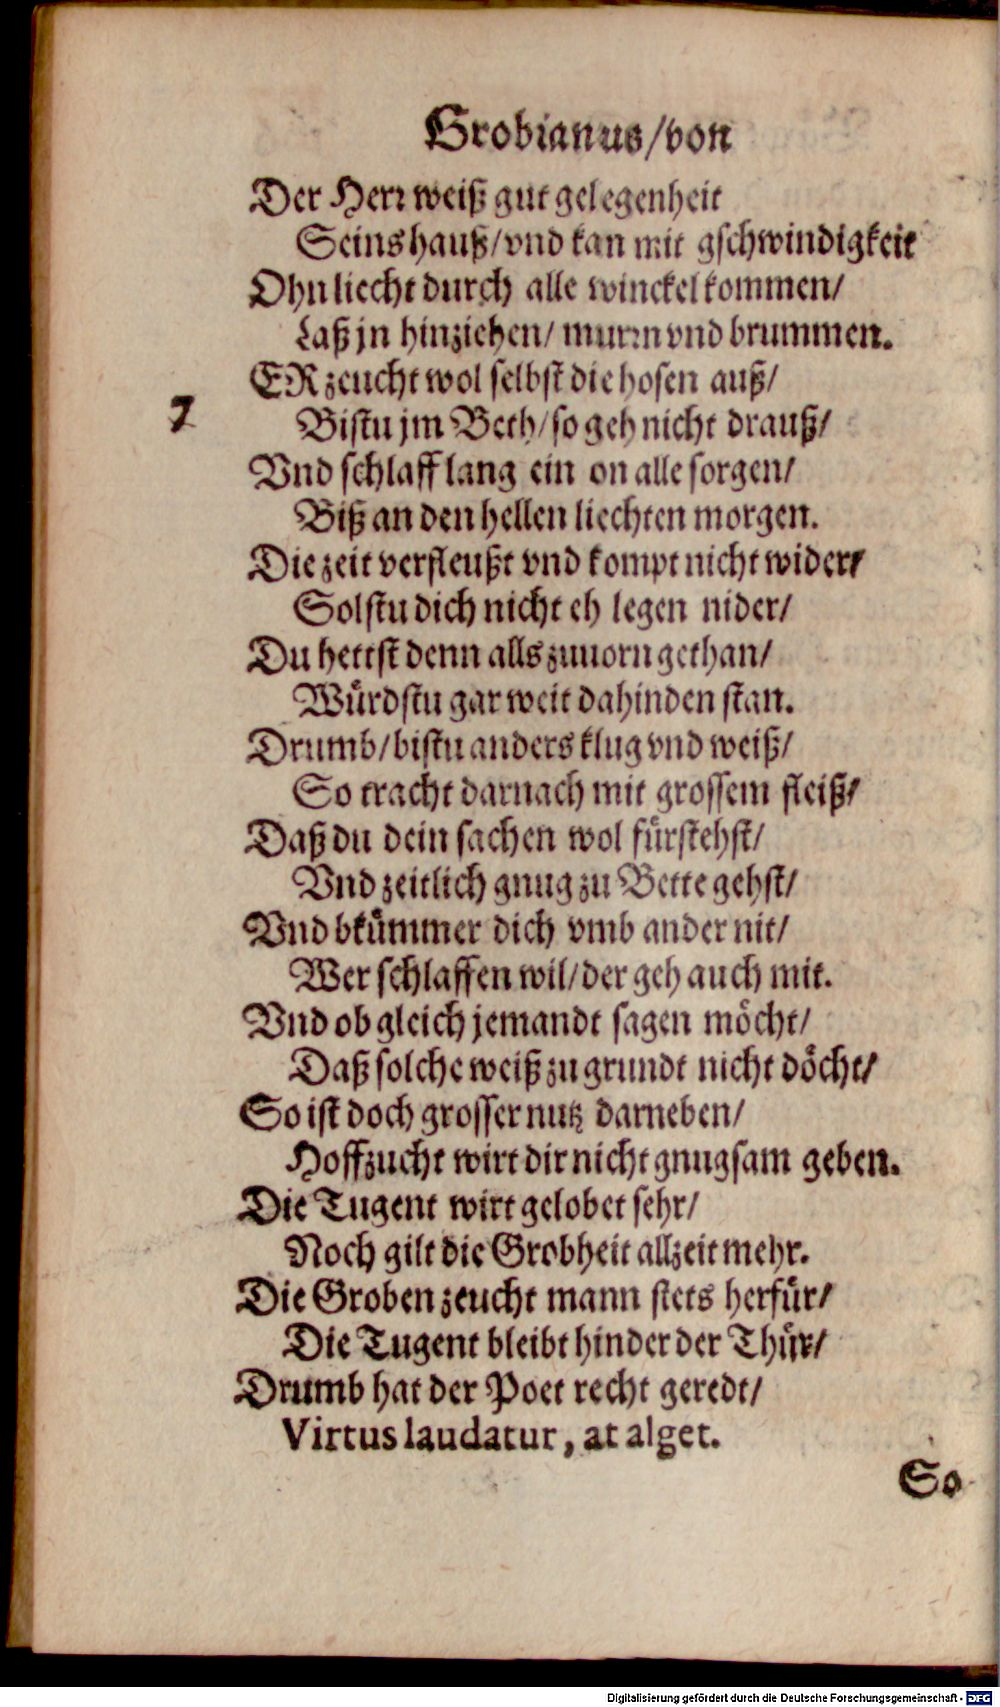 Grobianus/von
Der Herr weiß gut gelegenheit
Seins hauß/vnd kan mit gschwindigkeit
Ohn liecht durch alle winckel kommen/
Laß jn hinziehen/ murrn vnd brummen.
ER zeucht wol selbst die hosen auß/
7
Bistu jm Beth/so geh nicht drauß/
Vnd schlaff lang ein on alle sorgen/
Biß an den hellen liechten morgen.
Die zeit verfleußt vnd kompt nicht wider/
Solstu dich nicht eh legen nider/
Du hettst denn alls zuuorn gethan/
Würdstu gar weit dahinden stan.
Drumb/bistu anders klug vnd weiß/
So tracht darnach mit grossem fleiß/
Daß du dein sachen wol fürstehst/
Vnd zeitlich gnug zu Bette gehst/
Vnd bkümmer dich vmb ander nit/
Wer schlaffen wil/der geh auch mit.
Vnd ob gleich jemandt sagen möcht/
Daß solche weiß zu grundt nicht döcht/
So ist doch grosser nutz darneben/
Hoffzucht wirt dir nicht gnugsam geben.
Die Tugent wirt gelobet sehr/
Noch gilt die Grobheit allzeit mehr.
Die Groben zeucht mann stets herfür/
Die Tugent bleibt hinder der Thür/
Drumb hat der Poet recht geredt/
Virtus laudatur, at alget.
So
Digitalisierung gefördert durch die Deutsche Forschungsgemeinschaft - DFG